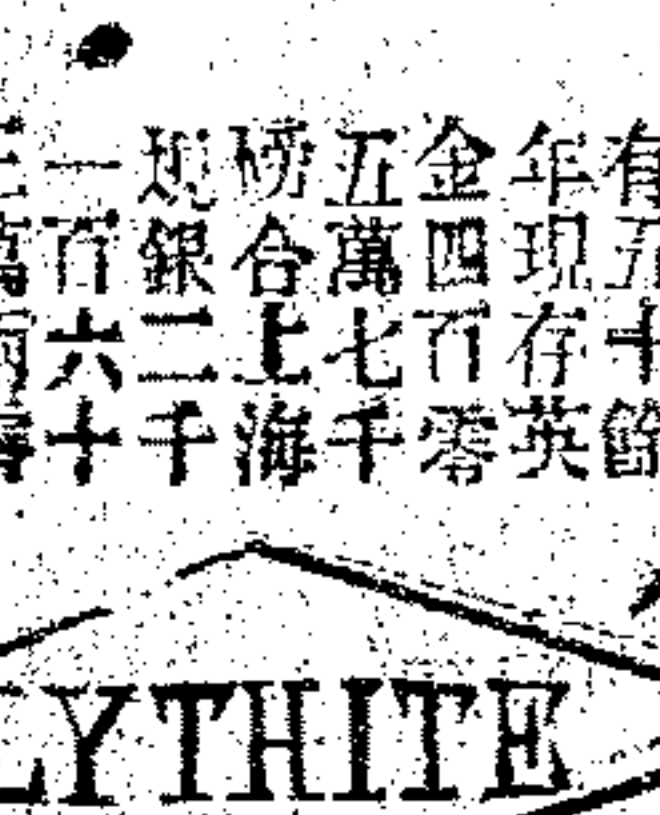 有五十餘
年現存英
金四百零
五萬七千
磅合上海
規銀二千
一百六十
LYTHITE